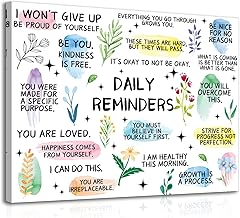 I WON'T GIVE UP
BE PROUD OF YOURSELF.
EVERYTHING YOU GO THROUGH
GROWS YOU.
BE NICE
FOR NO
REASON.
BE YOU,
KINDNESS
IS FREE.
THESE TIMES ARE HARD
BUT THEY WILL PASS.
WHAT IS COMING
IS BETTER THAN
WHAT IS GONE.
IT'S OKAY TO NOT BE OKAY.
YOU WERE
MADE FOR
A SPECIFIC
PURPOSE,
DAILY
REMINDERS
YOU WILL
OVERCOME
THIS.
YOU ARE LOVED.
YOU MUST
BELIEVE IN
YOURSELF FIRST.
STRIVE FOR
PROGRESS NOT
PERFECTION.
HAPPINESS COMES
FROM YOURSELF,
I CAN DO THIS.
I AM HEALTHY
THIS MORNING.
YOU ARE
IRREPLACEABLE.
GROWTH IS
A PROCESS.